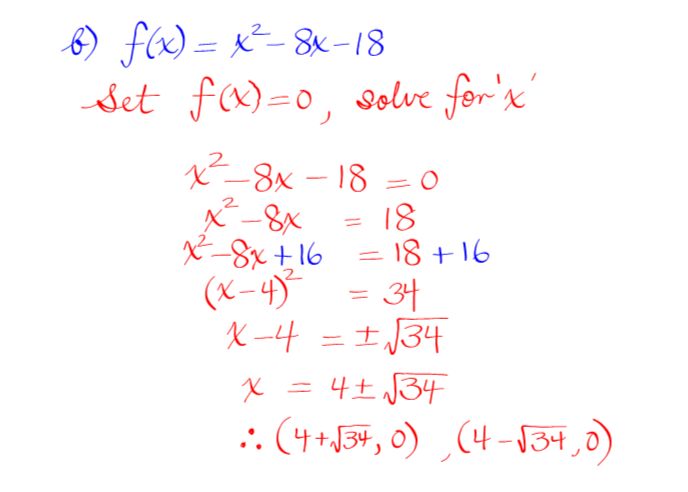 b) f(x) = x² - 8x - 18
Set f(x) = 0, solve for 'x'
x² - 8x - 18 = 0
x² - 8x = 18
x² - 8x + 16 = 18 + 16
(x - 4)² = 34
x - 4 = ±√34
x = 4 ± √34
∴ (4+√34, 0), (4-√34, 0)